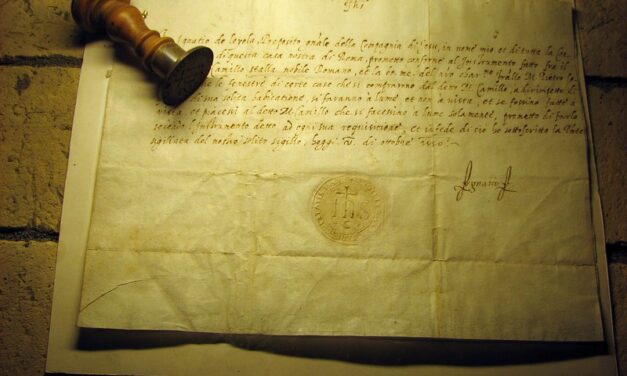 Jhs
Ignatio de Loyola Preposito gnale della Compagnia di Jesu, in nome mio et di tutta la
di questa casa nostra di Roma, prometto conforme al Instrumento fatto fra il
Camillo Astalli nobile Romano, et la bo. me. del
le fenestre di certe case che si compraron dal detto M. Camillo,
sua solita habitatione, si faranno a lume, et non a vista, et se fossino fatte a
vista, et piacesi al detto M. Camillo che si facessino a lume solamente, prometto di farlo
secondo l'instrumento detto ad ogni sua requisitione, et in fede di cio ho sottoscritto la
sigillata del nostro solito sigillo, hoggi di ottobre
Ignatio
ihs